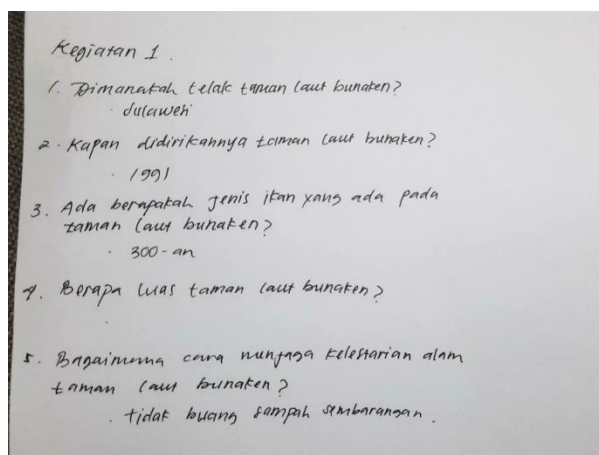 Kegiatan 1.
1. Dimanakah telak taman laut bunaken?
· Sulawesi
2. Kapan didirikannya taman laut bunaken?
· 1991
3. Ada berapakah jenis ikan yang ada pada
taman laut bunaken?
· 300-an
4. Berapa luas taman laut bunaken?
·
5. Bagaimana cara menjaga kelestarian alam
taman laut bunaken?
· tidak buang sampah sembarangan.